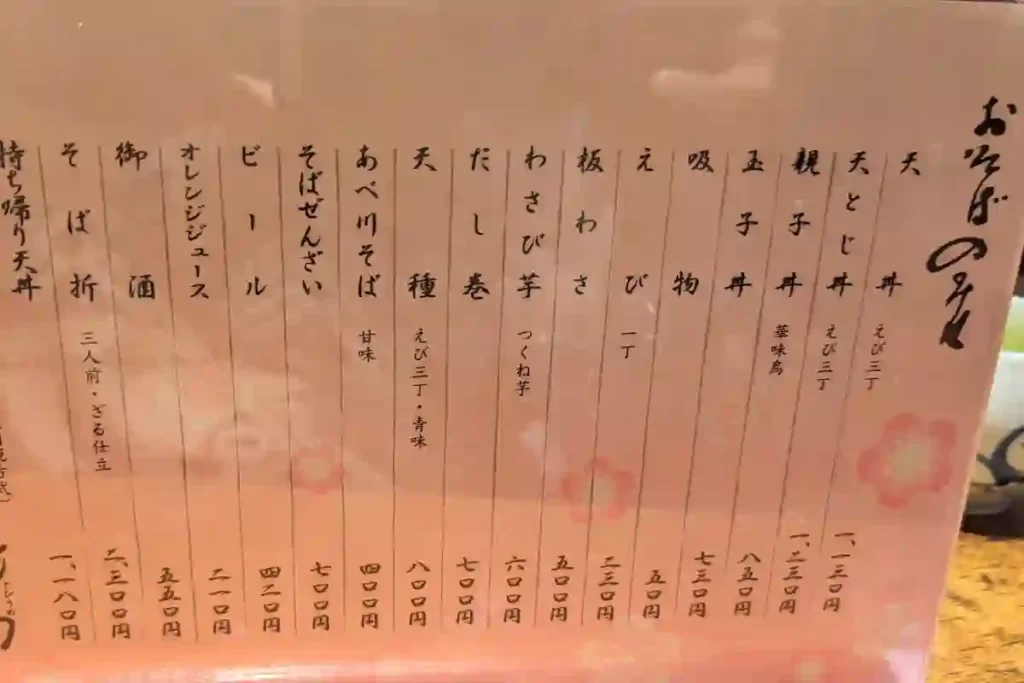 おそばのみせ
天丼 えび三丁 一、一三〇円
天とじ丼 えび三丁 一、二三〇円
親子丼 華味鳥 八五〇円
玉子丼 七三〇円
吸物 五〇円
えび 一丁 二三〇円
板わさ 五〇〇円
わさび芋 つくね芋 六〇〇円
だし巻 七〇〇円
天種 えび三丁・青味 八〇〇円
あべ川そば 甘味 四〇〇円
そばぜんざい 七〇〇円
ビール 四二〇円
オレンジジュース 二一〇円
御酒 五五〇円
そば折 三人前・ざる仕立 二、三〇〇円
持ち帰り天丼 一、一八〇円